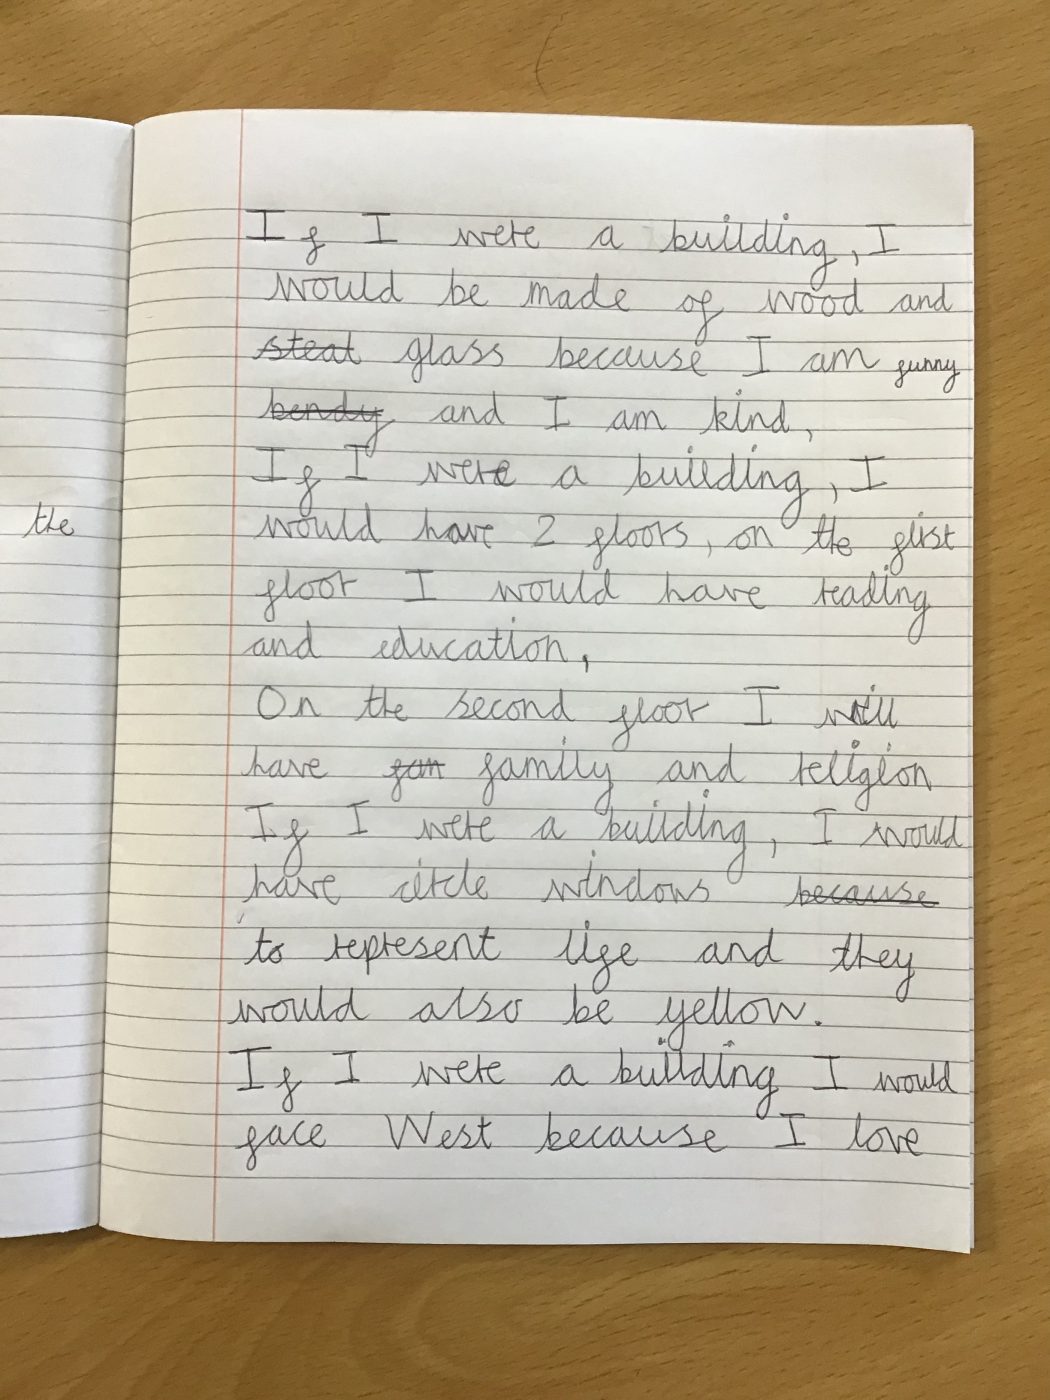 If I were a building, I
would be made of wood and
steat glass because I am funny
bendy and I am kind,
If I were a building, I
would have 2 floors, on the first
floor I would have reading
and education,
On the second floor I will
have fam family and religion
If I were a building, I would
have circle windows because
to represent life and they
would also be yellow.
If I were a building I would
face West because I love
the